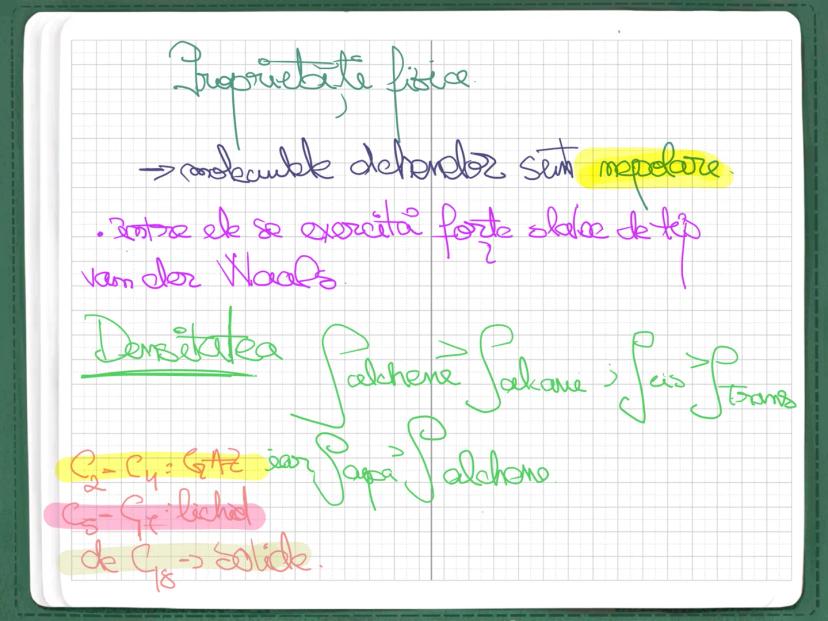 Proprietăți fizice
→ moleculele alchenelor sunt nepolare.
• între ele se exercită forțe slabe de tip
van der Waals.
Densitatea
ρalchene > ρalcani ; ρcis > ρtrans
iar ρapa > ρalchene
C2 - C4 : GAZ
C5 - C17 : lichid
de C18 → solide.